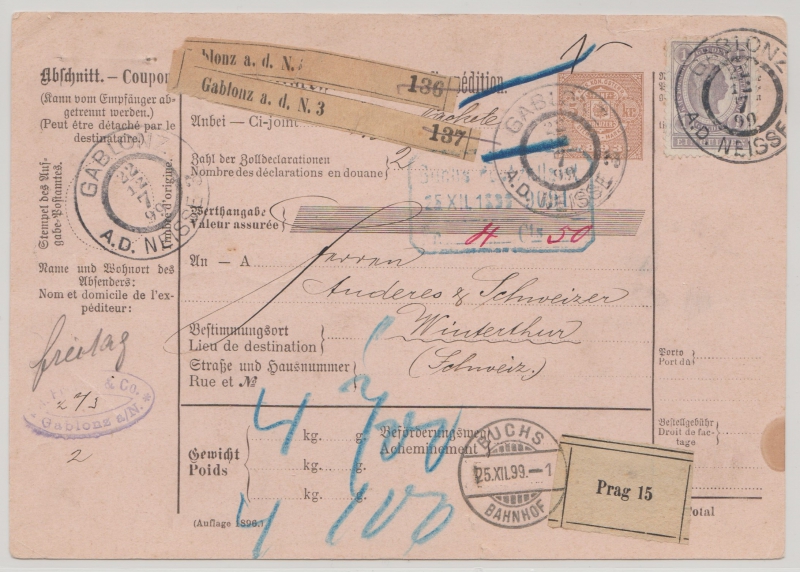 Abschnitt. — Coupon
(Kann vom Empfänger ab-
getrennt werden.)
(Peut être détaché par le
destinataire.)
Stempel des Auf-
gabe-Postamtes.
GABLONZ
A.D. NEISSE 3
99
Name und Wohnort des
Absenders:
Nom et domicile de l'ex-
péditeur:
freitag
& Co.
Gablonz a/N.
273
2
blonz a. d. N.
136
Gablonz a. d. N. 3
137
édition.
Anbei - Ci-joint
Zahl der Zolldeclarationen
Nombre des déclarations en douane
2
Werthangabe
Valeur assurée
25 XII. 1899
4 Cts 50
An — A
Herren
Anderes & Schweizer
Bestimmungsort
Lieu de destination
Winterthur
Straße und Hausnummer
Rue et №
(Schweiz.)
Gewicht
Poids
kg. g.
kg. g.
kg. g.
Beförderungsweg
Acheminement
4
4
BUCHS
25.XII.99.—1
BAHNHOF
Prag 15
(Auflage 1896.)
GABLONZ
A.D. NEISSE 3
99
GABLONZ
A.D. NEISSE
99
Porto
Port dû
Bestellgebühr
Droit de fac-
tage
Total